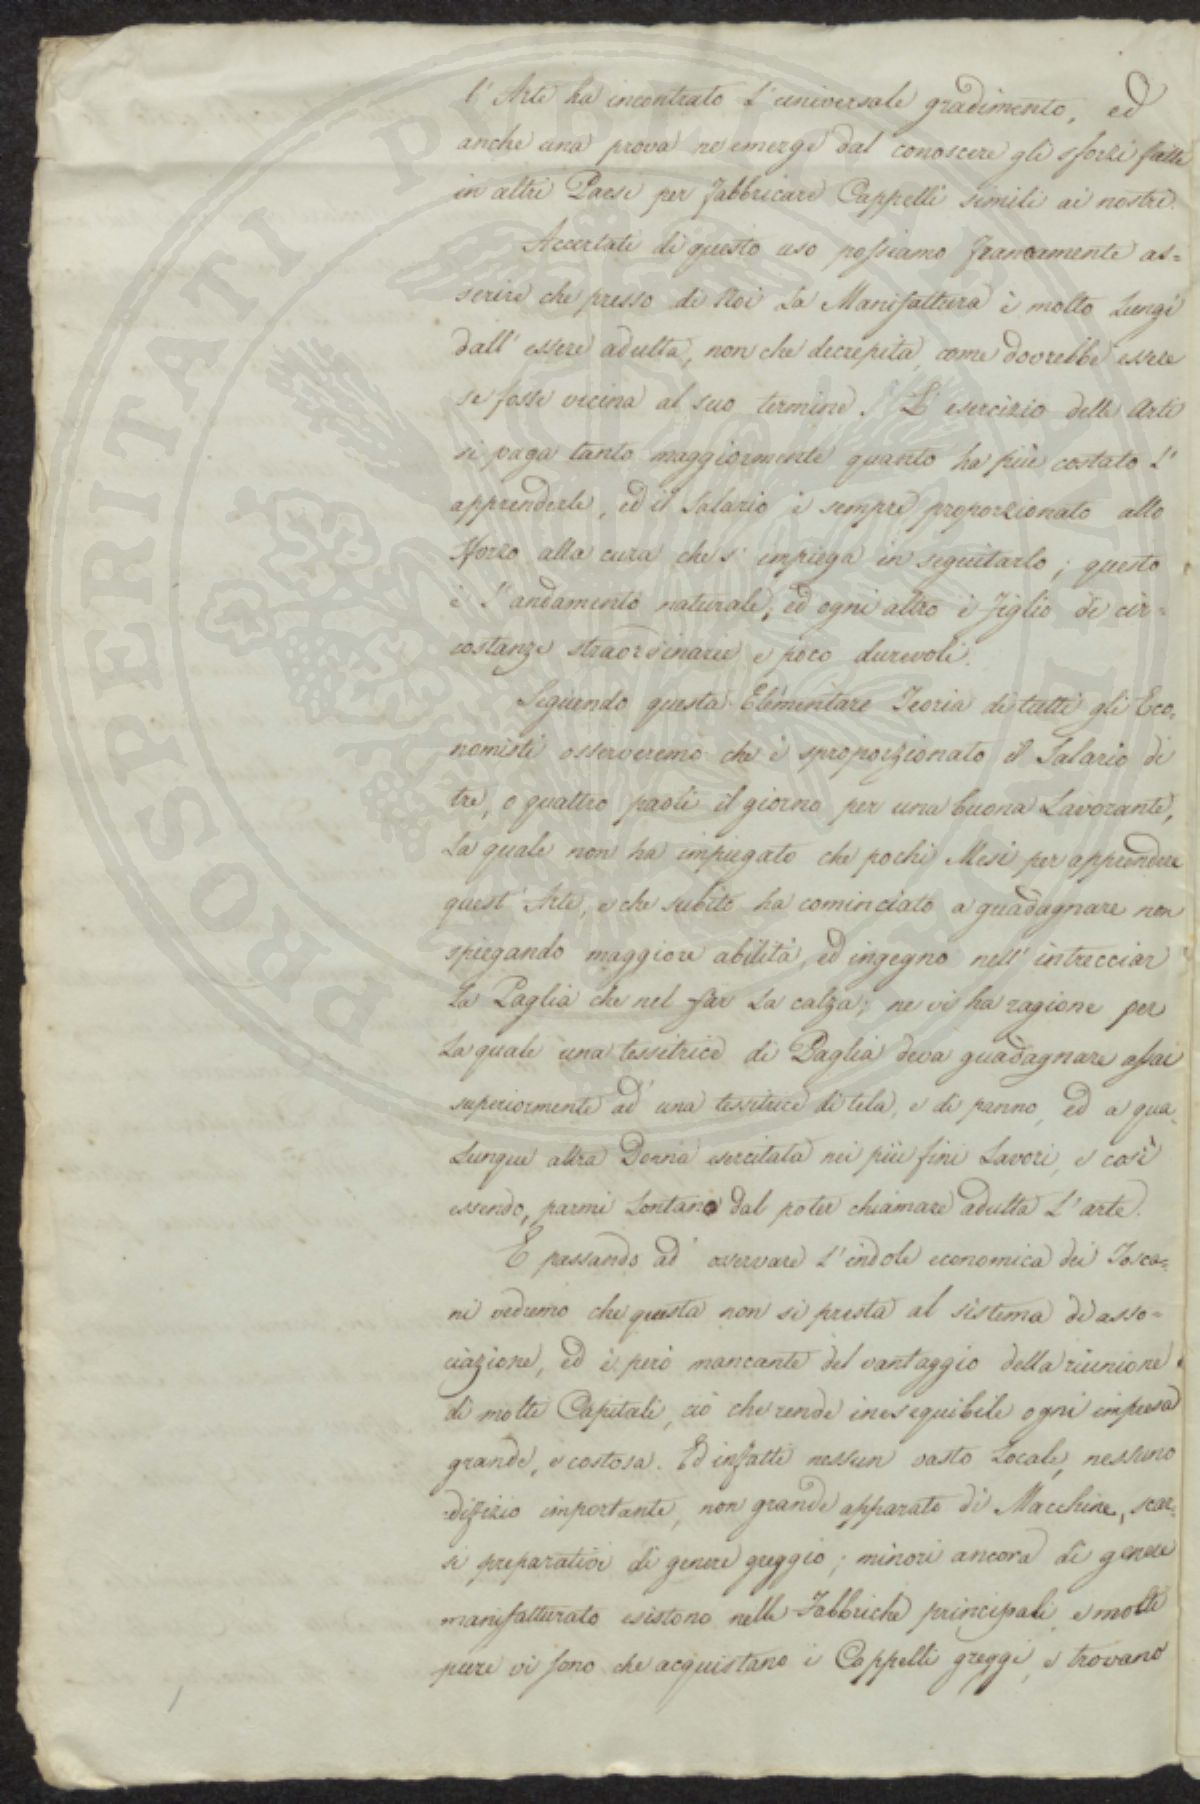 l'Arte ha incontrato l'universale gradimento, ed
anche una prova ne emerge dal conoscere gli sforzi fatti
in altri Paesi per fabbricare Cappelli simili ai nostri.
Accertati di questo uso possiamo francamente as=
serire che presso di Noi la Manifattura è molto lungi
dall'essere adulta, non che decrepita, come dovrebbe essere
se fosse vicina al suo termine. L'esercizio delle Arti
si paga tanto maggiormente quanto ha più costato l'
apprenderle, ed il Salario è sempre proporzionato allo
sforzo alla cura che s'impiega in seguitarlo; questo
è l'andamento naturale, ed ogni altro è figlio di cir=
costanze straordinarie e poco durevoli.
Seguendo questa Elementare Teoria di tutti gli Eco,
nomisti osserveremo che è sproporzionato il Salario di
tre, o quattro paoli il giorno per una buona Lavorante,
la quale non ha impiegato che pochi Mesi per apprendere
quest'Arte, e che subito ha cominciato a guadagnare non
spiegando maggiore abilità, ed ingegno nell'intrecciar
la Paglia che nel far la calza; ne vi ha ragione per
la quale una tessitrice di Paglia deva guadagnare assai
superiormente ad una tessitrice di tela, e di panno, ed a qua,
lunque altra Donna esercitata nei più fini Lavori, e così
essendo, parmi lontano dal poter chiamare adulta l'arte.
E passando ad osservare l'indole economica dei Tosca=
ni vedremo che questa non si presta al sistema di asso=
ciazione, ed è però mancante del vantaggio della riunione
di molti Capitali, ciò che rende ineseguibile ogni impresa
grande, e costosa. Ed infatti nessun vasto Locale, nessuno
edifizio importante, non grande apparato di Macchine, scar=
si preparativi di genere greggio; minori ancora di genere
manifatturato esistono nelle Fabbriche principali, e molti
pure vi sono che acquistano i Cappelli greggi, e trovano
PROSPERITATI PUBLICAE AUGENDAE